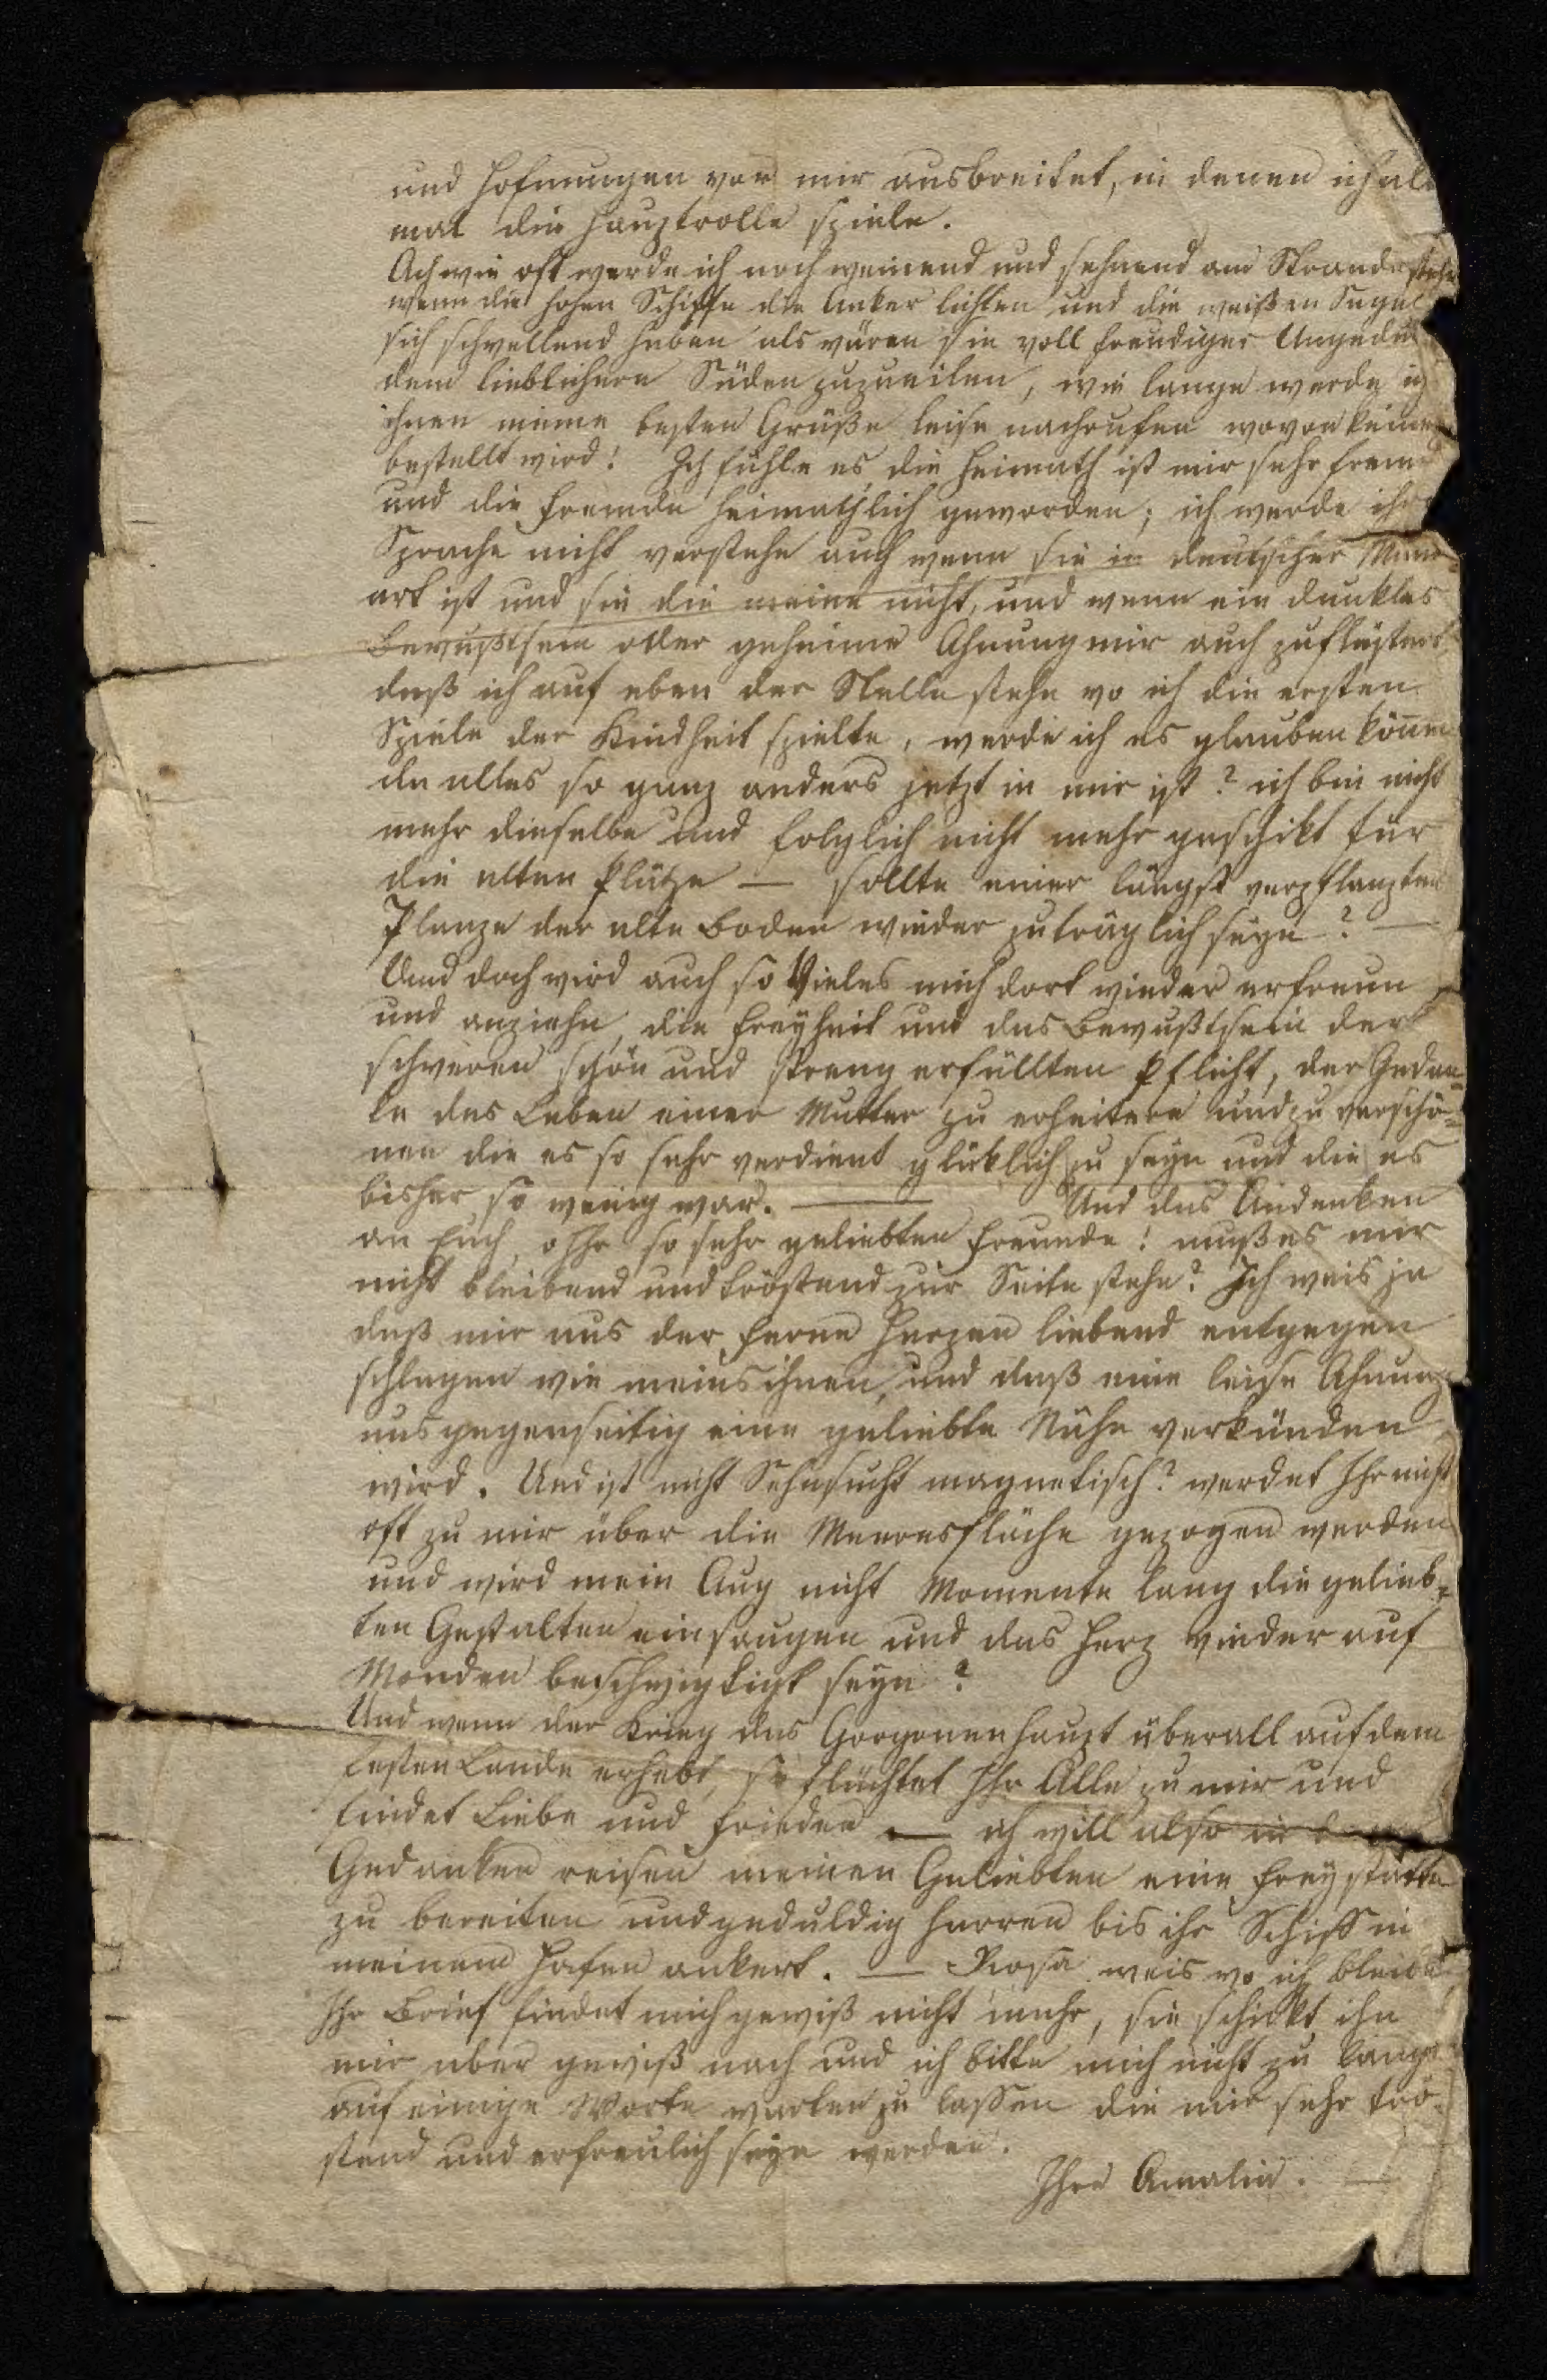 und Hofnungen vor mir ausbreitet, in denen ich alle
mal die Hauptrolle spiele.
Ach wie oft werde ich noch weinend und sehnend am Strande stehn
wenn die hohen Schiffe die Anker lichten und die weißen Segel
sich schwellend heben als wären sie voll freudiger Ungeduld
dem lieblichern Süden zuzueilen, wie lange werde ich
ihnen meine besten Grüße leise nachrufen wovon keiner
bestellt wird! Ich fühle es die Heimath ist mir sehr fremd
und die Fremde heimathlich geworden; ich werde ihre
Sprache nicht verstehn auch wenn sie in deutscher Mund=
art ist und sie die meine nicht, und wenn ein dunkles
Bewußtsein oder geheime Ahnung mir auch zuflüstert
daß ich auf eben der Stelle stehe wo ich die ersten
Spiele der Kindheit spielte, werde ich es glauben können
da alles so ganz anders jetzt in mir ist? ich bin nicht
mehr dieselbe und folglich nicht mehr geschikt für
die alten Plätze — sollte einer längst verpflanzten
Planze der alte Boden wieder zuträglich seyn? —
Und doch wird auch so Vieles mich dort wieder erfreun
und anziehn, die Freyheit und das Bewußtsein der
schweren schön und streng erfüllten Pflicht, der Gedan=
ke das Leben einer Mutter zu erheitern und zu verschö=
nen die es so sehr verdient glücklich zu seyn und die es
bisher so wenig war. — Und das Andenken
an Euch, o Ihr so sehr geliebten Freunde! muß es mir
nicht bleibend und tröstend zur Seite stehn? Ich weis ja
daß mir aus der Ferne Herzen liebend entgegen
schlagen wie meins ihnen, und daß eine leise Ahnung
uns gegenseitig eine geliebte Nähe verkünden
wird. Und ist nicht Sehnsucht magnetisch? werdet Ihr nicht
oft zu mir über die Meeresfläche gezogen werden
und wird mein Aug nicht Momente lang die gelieb=
ten Gestalten einsaugen und das Herz wieder auf
Monden beschwigtigt seyn?
Und wenn der Krieg das Gorgonenhaupt überall auf dem
festen Lande erhebt, so flüchtet Ihr Alle zu mir und
findet Liebe und Frieden — ich will also in
Gedanken reisen meinen Geliebten eine Freystätte
zu bereiten und geduldig harren bis ihr Schiff in
meinem Hafen ankert. — Rosa weis wo ich bleibe
Ihr Brief findet mich gewiß nicht mehr, sie schickt ihn
mir aber gewiß nach und ich bitte mich nicht zu lange
auf einige Worte warten zu lassen die mir sehr trö=
stend und erfreulich seyn werden.
Ihre Amalia. —